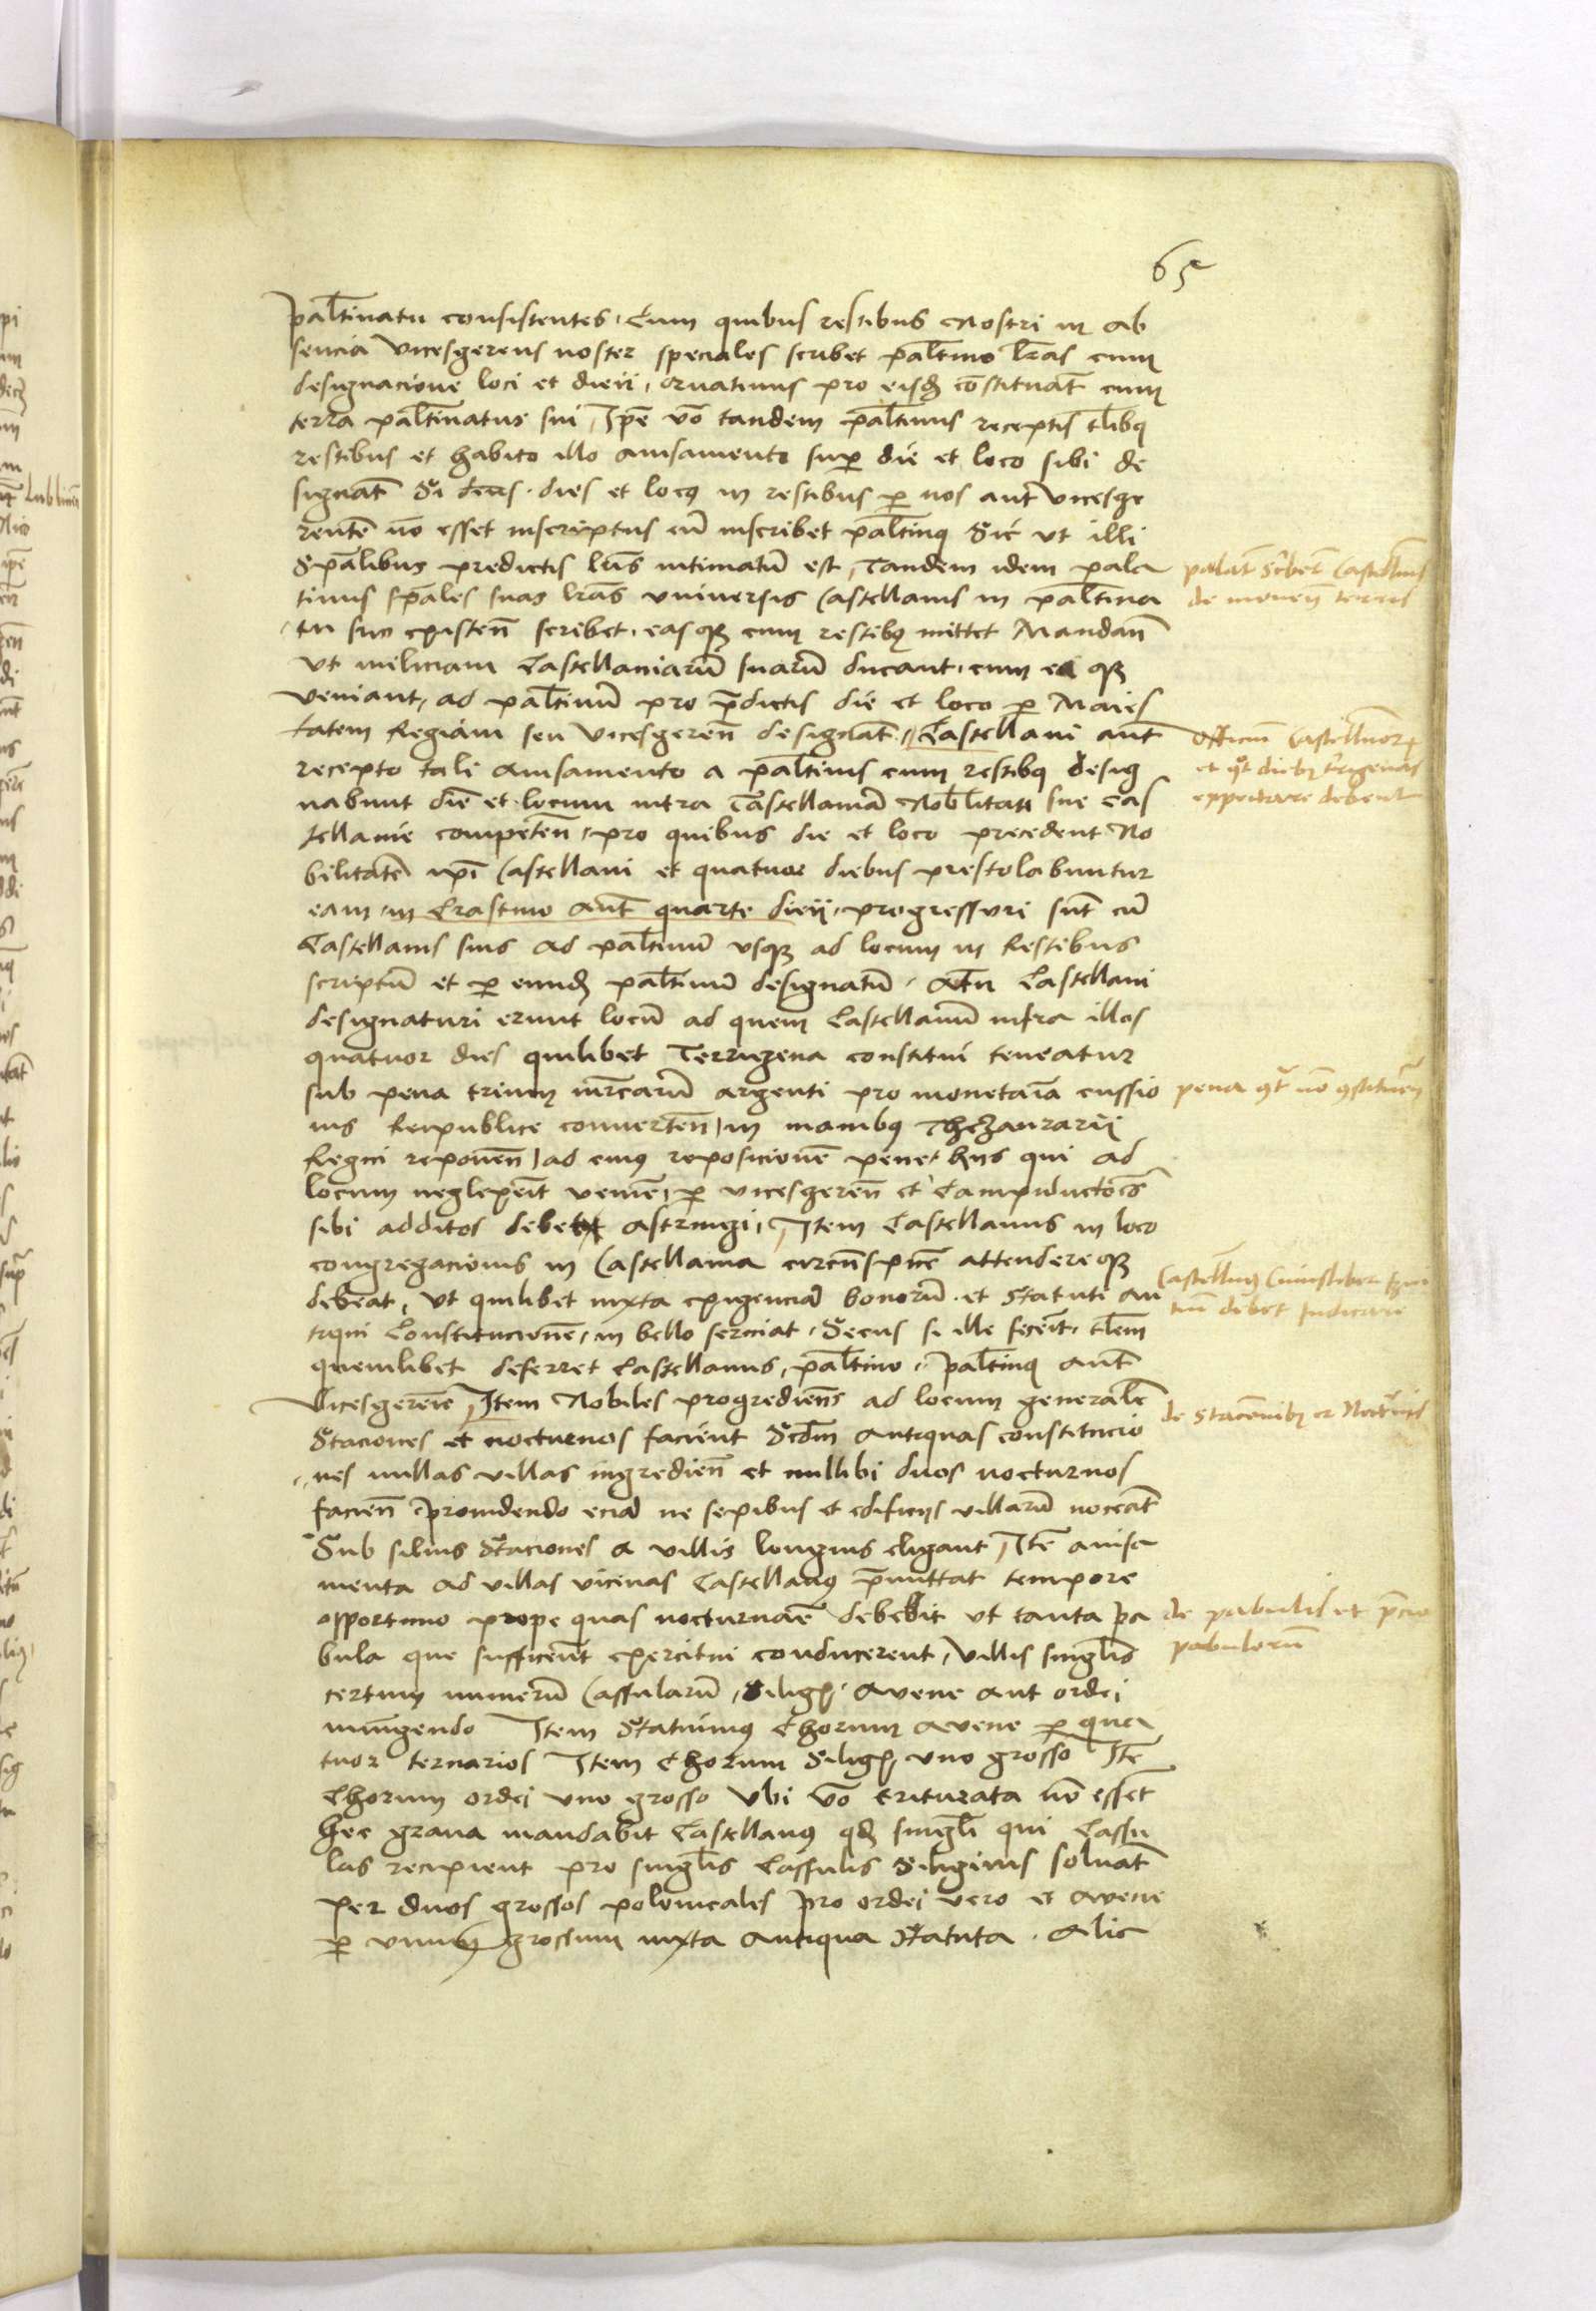 65
palt̄inatu consistentes, Cum quibus restibus Nostri in ab
sencia vicesgerens noster speciales scribet palt̄ino lr̄as cum
designacione loci et dieii, pro eisdē constituāt cum
terra palt̄inatus sui, Ip̄e vō tandem palt̄inus receptis
restibus et habito illo auisamento sup̄ die et loco sibi de
signat̄ Si dies et locus in restibus p̄ nos aut vicesge
rentē nō esset inscriptus eū inscribet palt̄inus Sic ut illi
Spālibus predictis lr̄is intimatū est, Tandem idem pala
tinus spāles suas lr̄as vniuersis Castellanis in palt̄ina
tu suo existen̄ scribet, easque cum restibus mittet Mandan̄
vt miliciam Castellaniarū suarū ducant, cum ea que
veniant, ad palt̄inū pro p̄dictis die et loco p̄ Maies
tatem Regiam seu vicesgeren̄ designat̄, Castellani aut̄
recepto tali auisamento a palt̄inis cum restibus desig
nabunt diē et locum intra Castellaniā Nobilitati sue Cas
tellanie competen̄, pro quibus die et loco precedent No
bilitatē ip̄i Castellani et quatuor diebus prestolabuntur
eam, in Crastino aut̄ quarte dieii, progressuri sūt cū
Castellanis suis ad palt̄inū usque ad locum in Restibus
scriptū et p̄ eundē palt̄inū designatū, Castellani
designaturi erunt locū ad quem Castellanū infra illos
quatuor dies quilibet Terrigena constitui teneatur
sub pena trium mrcarū argenti pro monetaria cussio
nis Reipublice conuerten̄, in manibus Thezaurarii
Regni reponen̄, ad cuius reposicionē pene, hiis qui ad
locum neglexerīt venire, p̄ vicesgeren̄ et Campiductores
sibi additos debet astringi, Item Castellanus in loco
congregacionis in Castellania attendereque
debeat, vt quilibet iuxta exigenciā bonorū et Statuti an
tiqui Constitucionē, in bello seruiat, Secus si ille fecerit, tlem̄
quemlibet deferret Castellanus, palt̄ino, palt̄inus aut̄
Vicesgerente, Item Nobiles progredien̄s ad locum generalē
Staciones et nocturnos facient Scdm̄ antiquas constitucio
nes nullas villas ingredien̄ et nullibi duos nocturnos
facien̄, prouidendo eciā ne sepibus et edificiis villarū noceat̄
Sub siluis Staciones a villis longius eligant, Itē auisa
menta ad villas vicinas Castellanus p̄mittat tempore
opportuno prope quas nocturnare debebit ut tanta pa
bula que sufficerent exercitui conducerent, villis singlis̄
certum numerū Cassularū, Siligis, avene aut ordei
iniungendo Item Statuimus Chorum avene p̄ qua
tuor ternarios Item Chorum Siligis vno grosso Itē
Chorum ordei vno grosso Vbi vō triturata nō essēt
hec grana mandabit Castellanus quod singli̅ qui Cassu
las recipient pro singlis̄ Cassulis Siliginis soluāt
per duos grossos polonicales pro ordei vero et avene
p̄ vnum grossum iuxta antiqua Statuta. Alia
palat̄ Scribet Castellanis
de mouen̄ terris
officiū Castellanorum
et qt̄ diebus terrigenas
expectare debent
pena qt̄ nō constituen̄
Castellanus Cuiuslibet
debet Iudicare
de Stacionibus et Nocturnis
de pabulis et p̄cio
pabulorū